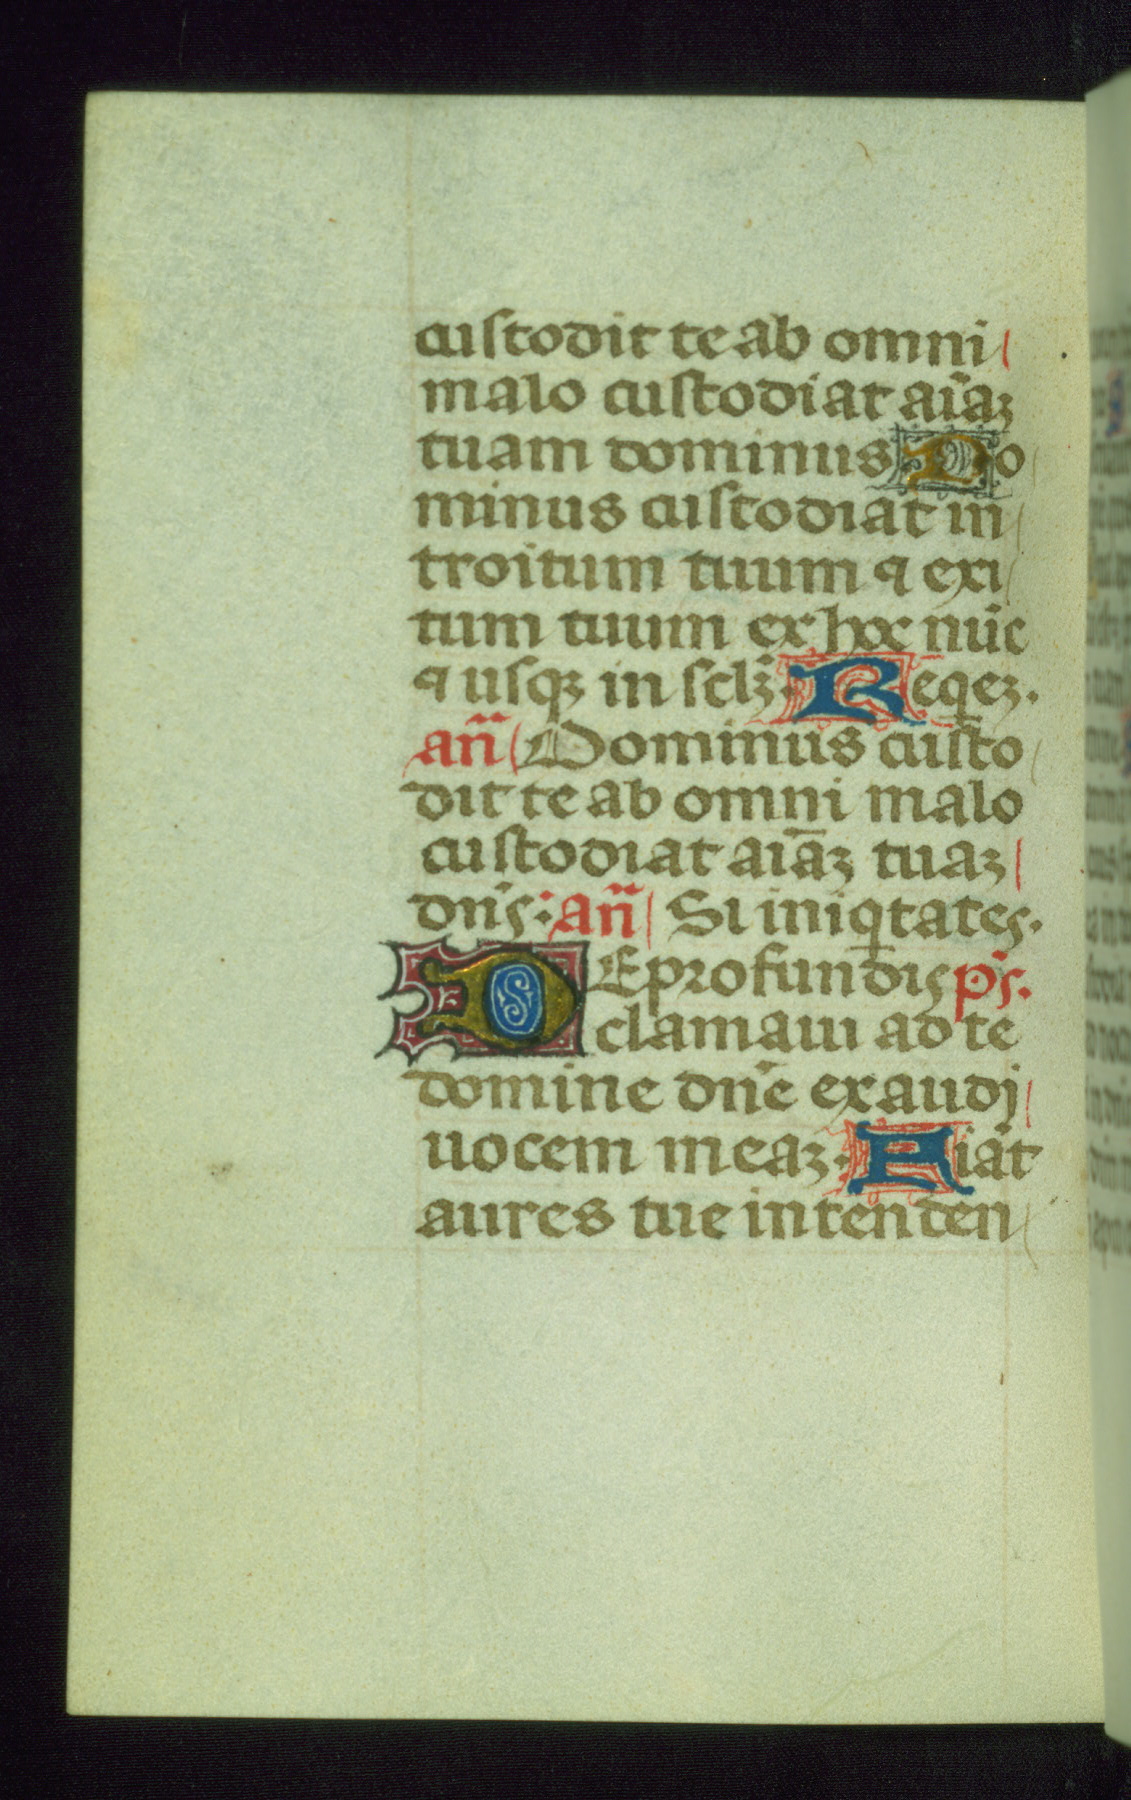 custodit te ab omni
malo custodiat aı̄aꝫ
tuam dominus Do
minus custodiat in
troitum tuum ⁊ exi
tum tuum ex hoc nūc
⁊ usqꝫ in sclꝫ. Reqeꝫ.
an̄ Dominus custo
dit te ab omni malo
custodiat aiāꝫ tuaꝫ
dn̄s: an̄ Si iniqtates.
DE profundis ps.
clamaui ad te
domine dn̄e exaudi
uocem meaꝫ. Fiāt
aures tue intenden